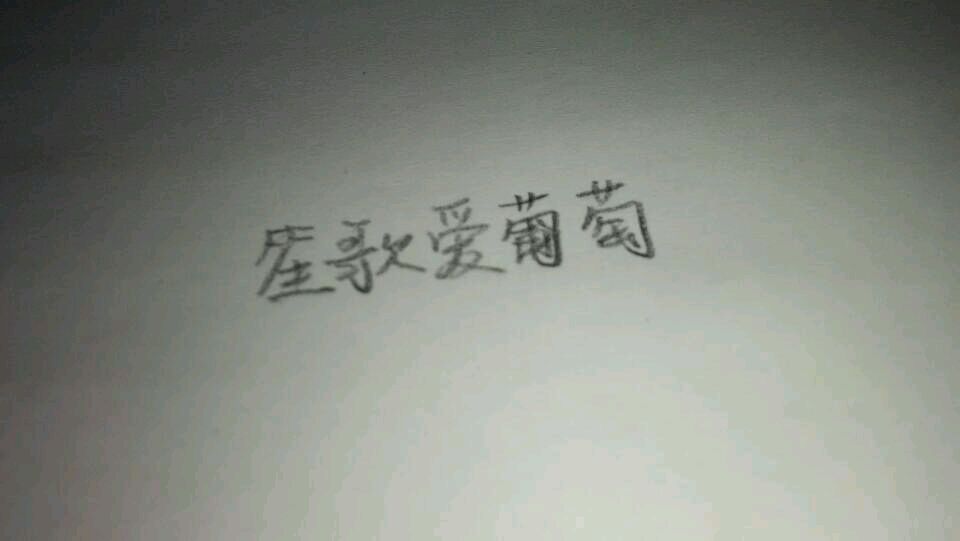 座歌爱葡萄